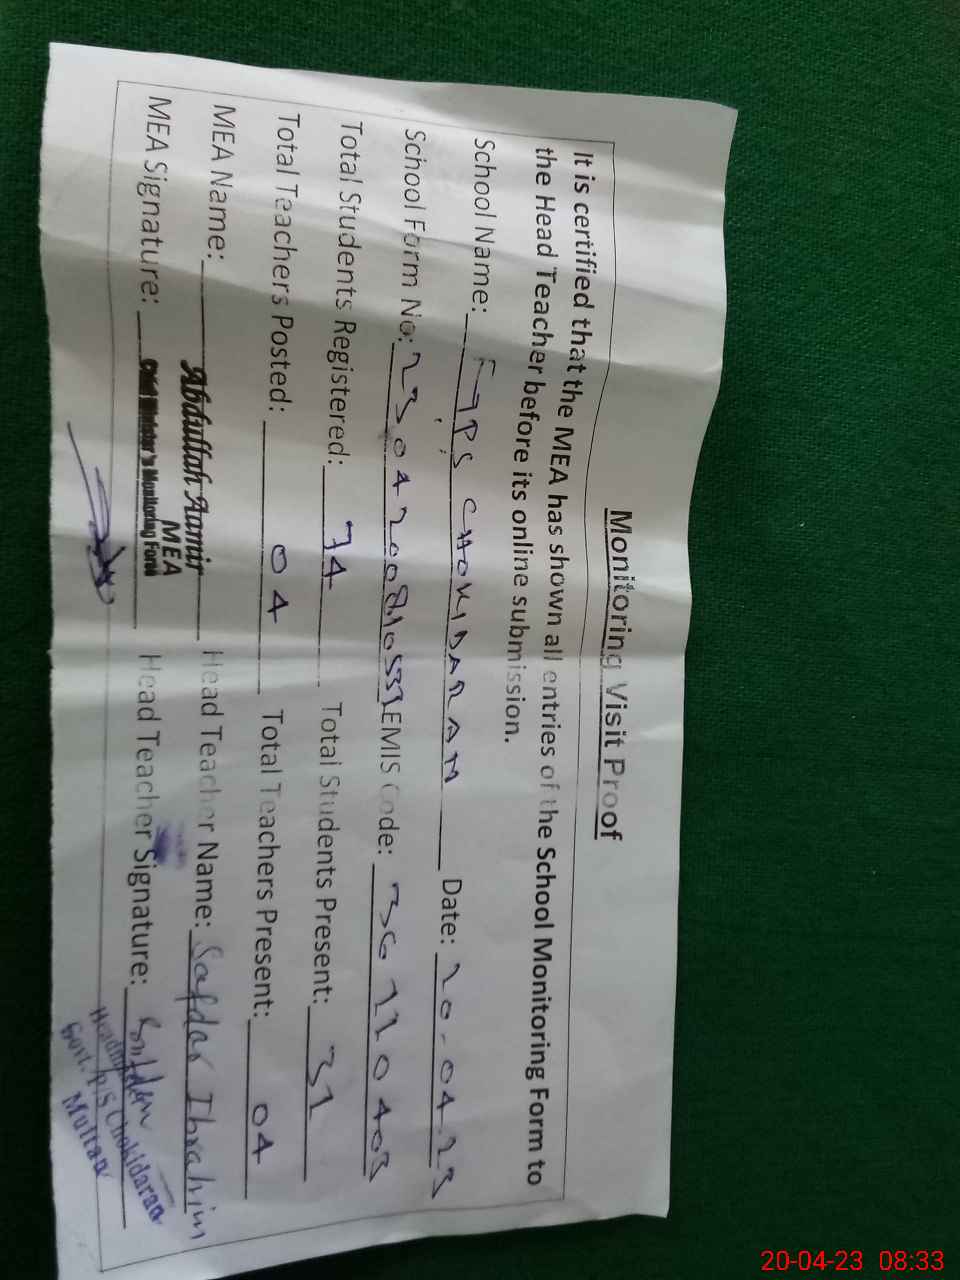 Monitoring Visit Proof
It is certified that the MEA has shown all entries of the School Monitoring Form to
the Head Teacher before its online submission.
School Name: GPS CHOKIDARAN Date: 20-04-23
School Form No: EMIS Code:
Total Students Registered: 74 Total Students Present: 31
Total Teachers Posted: 04 Total Teachers Present: 04
MEA Name: Abdullah Aamir Head Teacher Name: Safdar Ibrahim
MEA
Chief Minister's Monitoring Force
MEA Signature: Head Teacher Signature:
Govt. P/S Chokidaran
Multan
20-04-23 08:33